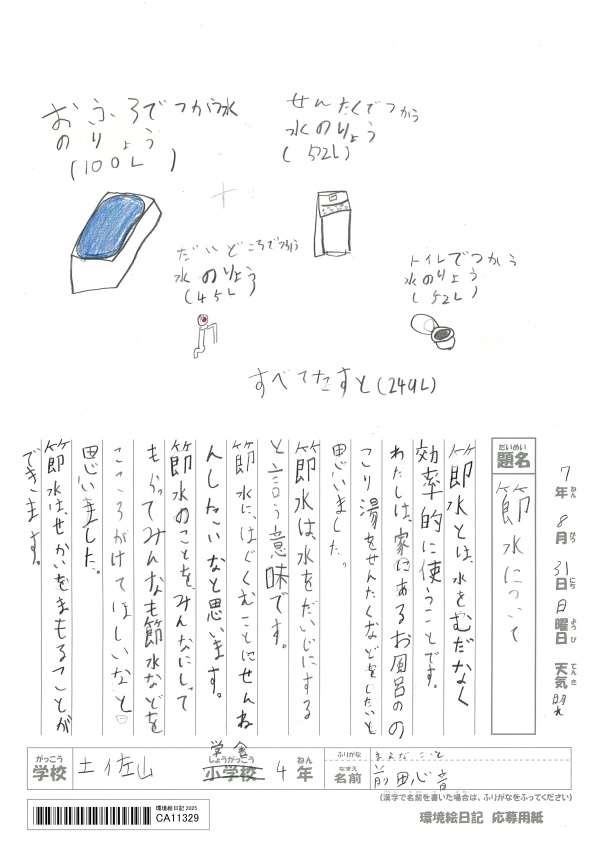 おふろでつかう水
のりょう
(100L)
せんたくでつかう
水のりょう
(52L)
だいどころでつかう
水のりょう
(45L)
トイレでつかう
水のりょう
(52L)
すべてたすと(249L)
7年ねん 8月がつ 31日にち 日曜日ようび 天気てんき
だいめい
題名
節水について
節水とは、水をむだなく
効率的に使うことです。
わたしは、家にあるお風呂のの
こり湯をせんたくなどをしたいと
思いました。
節水は水をだいじにする
と言う意味です。
節水に、はぐくむことにせんね
んしたいなと思います。
節水のことを、みんなにしって
もらってみんなも節水などを
こころがけてほしいなと
思いました。
節水は、せかいをまもることが
できます。
がっこう
学校
土佐山
学舎
しょうがっこう
小学校
4年ねん
ふりがな
まえだ こと
なまえ
名前
前田心音
(漢字で名前を書いた場合は、ふりがなをふってください)
環境絵日記 2025
CA11329
環境絵日記 応募用紙